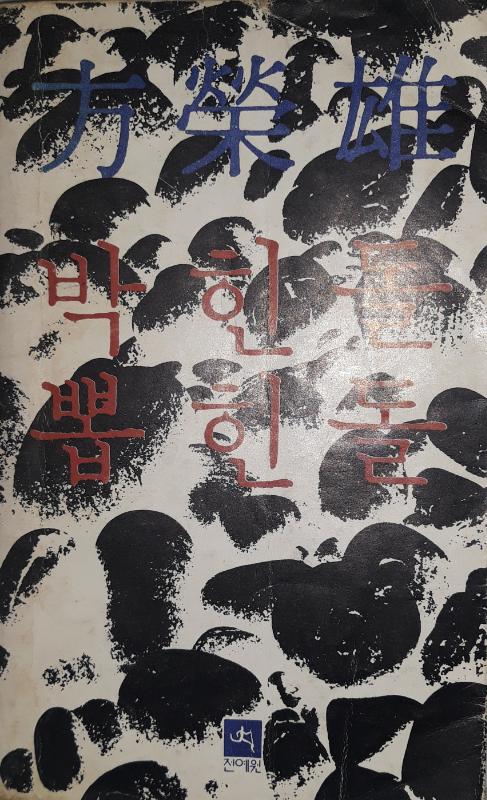 方榮雄
박힌돌
뽑힌돌
전예원